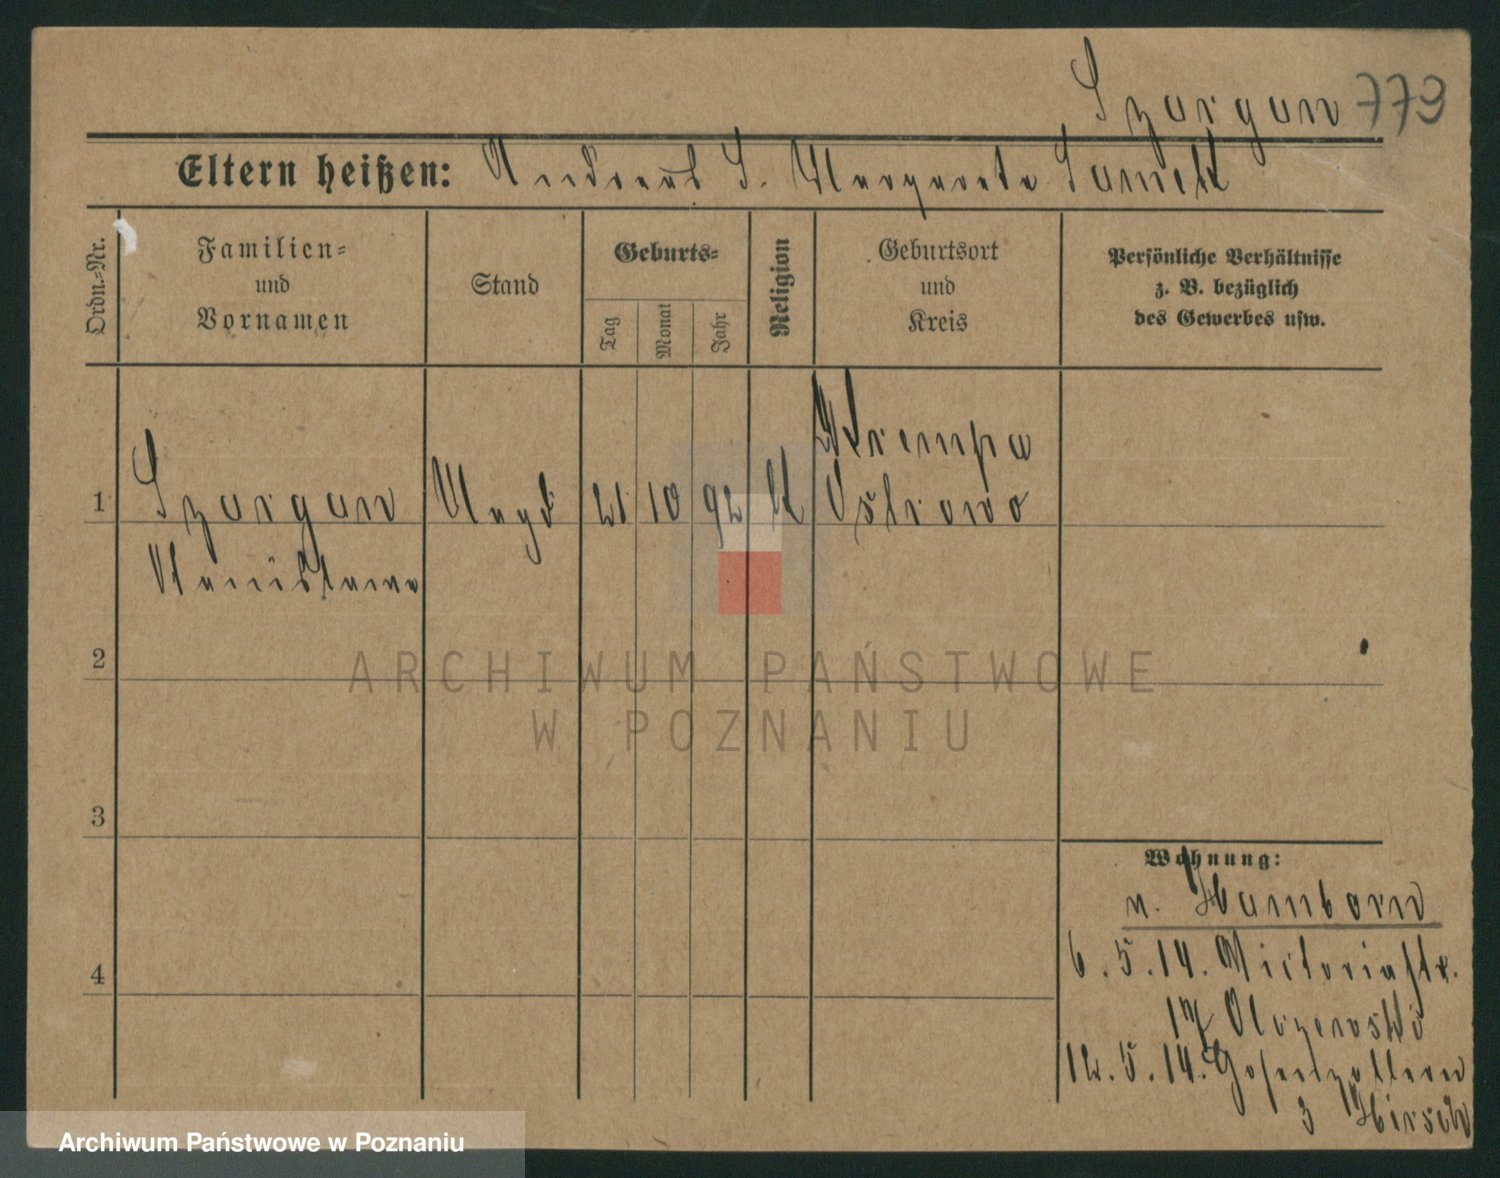 Szargan 773
Eltern heißen: Andreas S. Margareta
Ordn.-Nr.
Familien-
und
Vornamen
Stand
Geburts-
Tag
Monat
Jahr
Religion
Geburtsort
und
Kreis
Persönliche Verhältnisse
z. B. bezüglich
des Gewerbes usw.
1
Szargan
Stanislawa
Magd
21
10
92
K
Krempa
Ostrowo
2
3
4
Wohnung:
n. Hamborn
6.5.14. Victoriastr.
17
12.5.14. Hohenzollern
3 Hirsch
ARCHIWUM PAŃSTWOWE
W POZNANIU
Archiwum Państwowe w Poznaniu